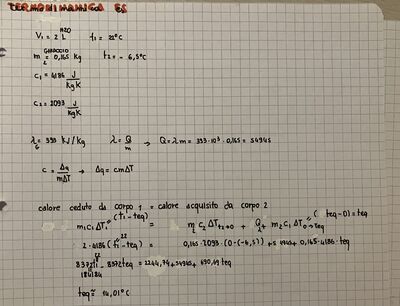 TERMODINAMICA ES
V₁ = 2 L H2O t₁ = 22°C
m₂ GHIACCIO = 0,165 kg t₂ = - 6,5°C
c₁ = 4186 J/kgK
c₂ = 2093 J/kgK
λ = 333 kJ/kg λ = Q/m → Q = λm = 333·10³ · 0,165 = 54945
c = Δq/mΔT → Δq = cmΔT
calore ceduto da corpo 1 = calore acquisito da corpo 2
m₁c₁ΔT₁ (t₁ - teq) = m₂c₂ΔT t₂→0 + Q + m₂c₁ΔT 0→teq (teq-0) = teq
2 · 4186 (t₁ - teq) 22 = 0,165 · 2093 (0-(-6,5)) + 54945 + 0,165 · 4186 · teq
8372 - 8372teq = 2244,74 + 54945 + 690,69 teq
184184
teq ≈ 14,01°C